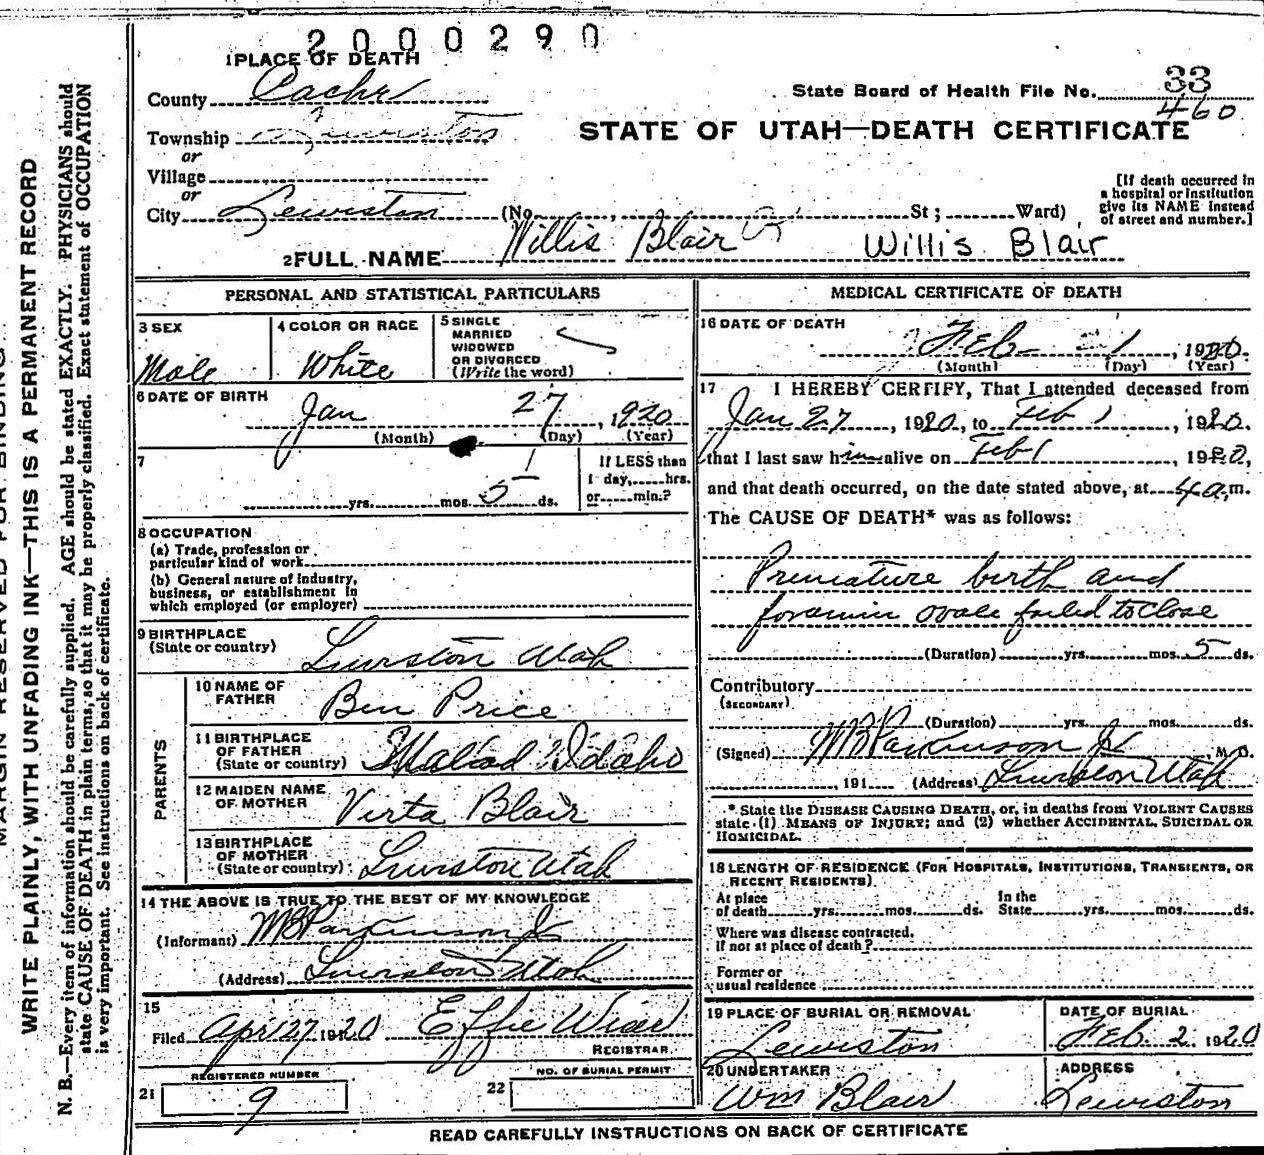 2000290
1 PLACE OF DEATH
County Cache
State Board of Health File No. 33
460
Township Lewiston
STATE OF UTAH—DEATH CERTIFICATE
or
Village
or
City Lewiston (No. , St ; Ward)
[If death occurred in a hospital or institution give its NAME instead of street and number.]
2 FULL NAME Willis Blair Willis Blair
PERSONAL AND STATISTICAL PARTICULARS
3 SEX Male
4 COLOR OR RACE White
5 SINGLE MARRIED WIDOWED OR DIVORCED (Write the word)
6 DATE OF BIRTH Jan 27, 1920
(Month) (Day) (Year)
7 yrs. mos. 5 ds.
If LESS than 1 day, hrs. or min.?
8 OCCUPATION
(a) Trade, profession or particular kind of work
(b) General nature of industry, business, or establishment in which employed (or employer)
9 BIRTHPLACE (State or country) Lewiston Utah
PARENTS
10 NAME OF FATHER Ben Price
11 BIRTHPLACE OF FATHER (State or country) Malad Idaho
12 MAIDEN NAME OF MOTHER Virta Blair
13 BIRTHPLACE OF MOTHER (State or country) Lewiston Utah
14 THE ABOVE IS TRUE TO THE BEST OF MY KNOWLEDGE
(Informant) W B Parkinson Jr
(Address) Lewiston Utah
15
Filed Apr 27 1920 Effie Wiser
REGISTRAR
21 REGISTERED NUMBER 9
22 NO. OF BURIAL PERMIT
MEDICAL CERTIFICATE OF DEATH
16 DATE OF DEATH Feb 1, 1920.
(Month) (Day) (Year)
17 I HEREBY CERTIFY, That I attended deceased from
Jan 27, 1920, to Feb 1, 1920.
that I last saw him alive on Feb 1, 1920,
and that death occurred, on the date stated above, at 4 a.m.
The CAUSE OF DEATH* was as follows:
Premature birth and
foramin ovale failed to close
(Duration) yrs. mos. 5 ds.
Contributory
(SECONDARY)
(Duration) yrs. mos. ds.
(Signed) W B Parkinson Jr M. D.
, 191 (Address) Lewiston Utah
* State the DISEASE CAUSING DEATH, or, in deaths from VIOLENT CAUSES state (1) MEANS OF INJURY; and (2) whether ACCIDENTAL, SUICIDAL OR HOMICIDAL.
18 LENGTH OF RESIDENCE (FOR HOSPITALS, INSTITUTIONS, TRANSIENTS, OR RECENT RESIDENTS)
At place of death yrs. mos. ds. In the State yrs. mos. ds.
Where was disease contracted, If not at place of death?
Former or usual residence
19 PLACE OF BURIAL OR REMOVAL Lewiston
DATE OF BURIAL Feb. 2 1920
20 UNDERTAKER Wm Blair
ADDRESS Lewiston
READ CAREFULLY INSTRUCTIONS ON BACK OF CERTIFICATE
WRITE PLAINLY, WITH UNFADING INK—THIS IS A PERMANENT RECORD
N. B.—Every item of information should be carefully supplied. AGE should be stated EXACTLY. PHYSICIANS should
state CAUSE OF DEATH in plain terms, so that it may be properly classified. Exact statement of OCCUPATION
is very important. See instructions on back of certificate.